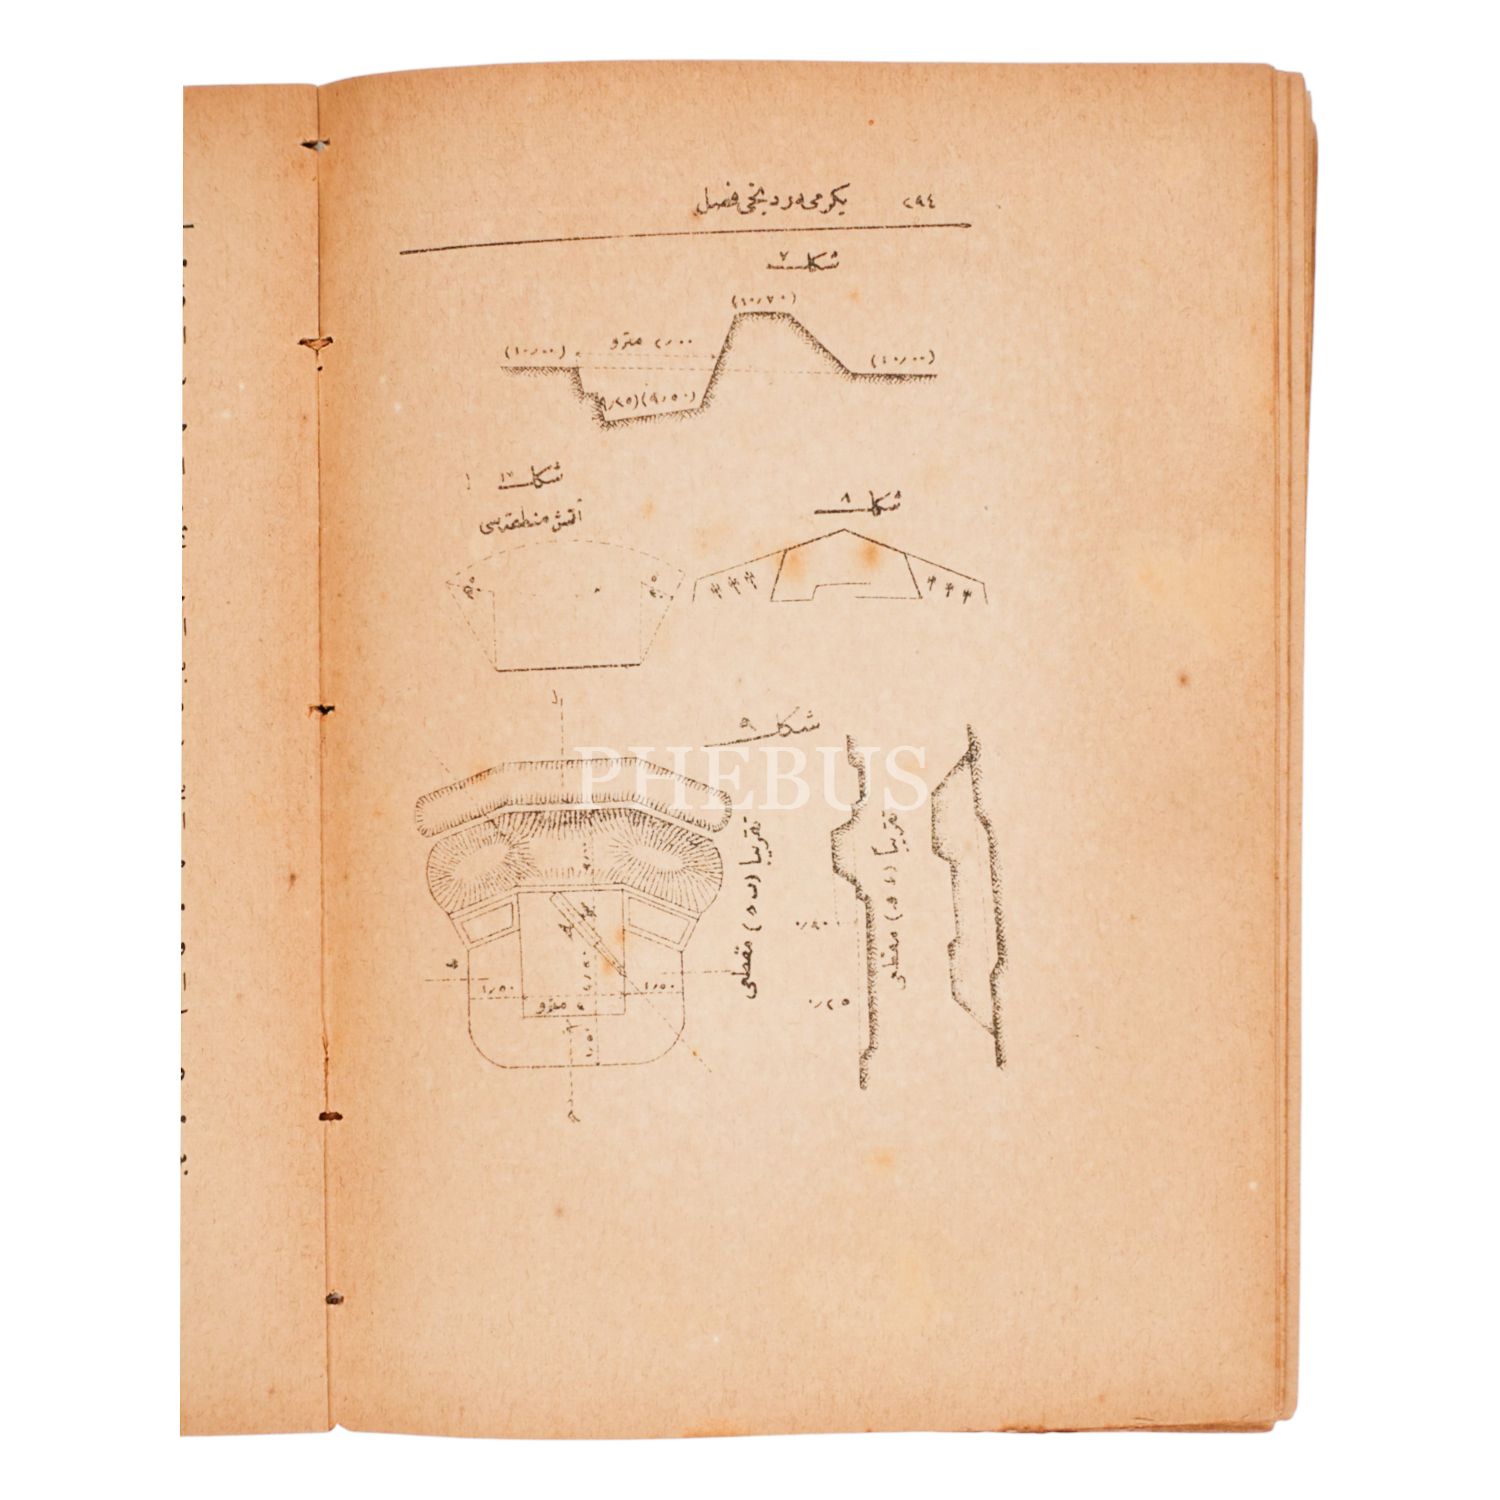 ٢٩٤ يكرمی دردنجی فصل
شكل ٧
(١٠٫٧٠)
(١٠٫٠٠) ٢٫٠٠ مترو (١٠٫٠٠)
(٩٫٢٥) (٩٫٥٠)
شكل
آتش منطقه سی
شكل ٨
شكل ٩
PHEBUS
تقريباً مقطعی
تقريباً مقطعی
٠٫٨٠
٠٫٢٥
١٫٥٠ مترو ١٫٥٠
١٫٥٠